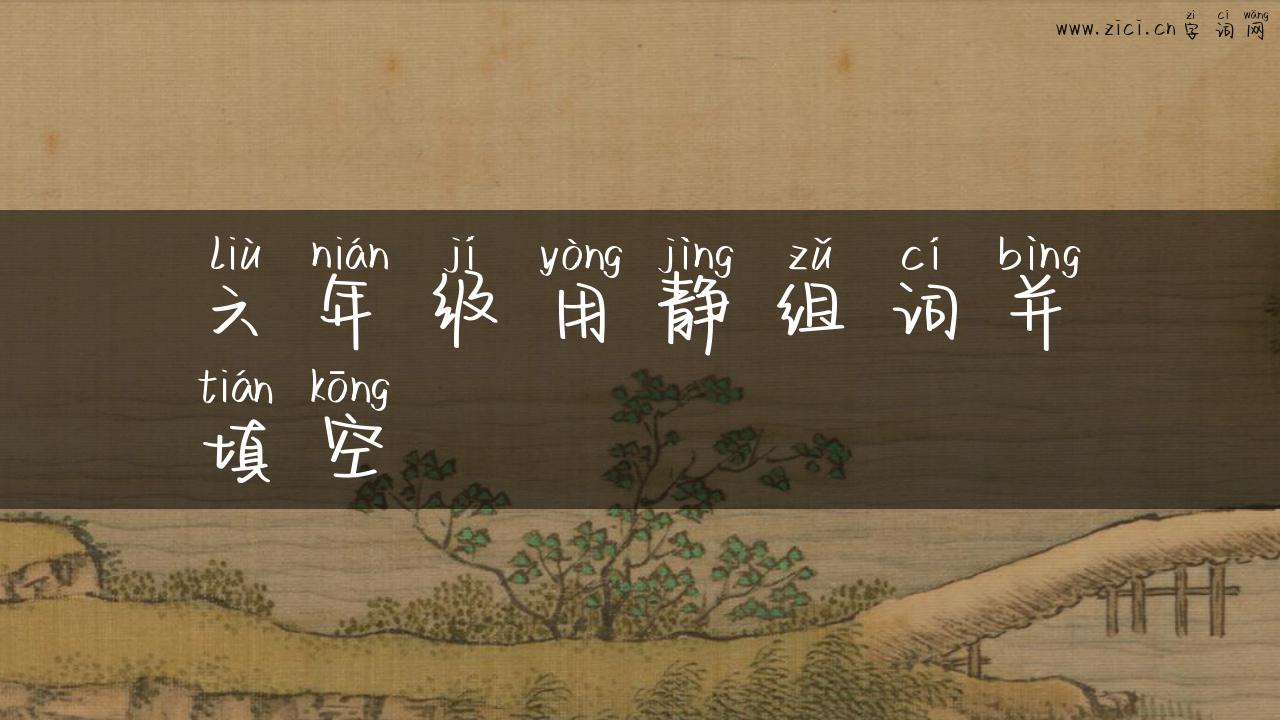 zì cí wǎng
www.zici.cn 字词网
liù nián jí yòng jìng zǔ cí bìng
六年级用静组词并
tián kōng
填空